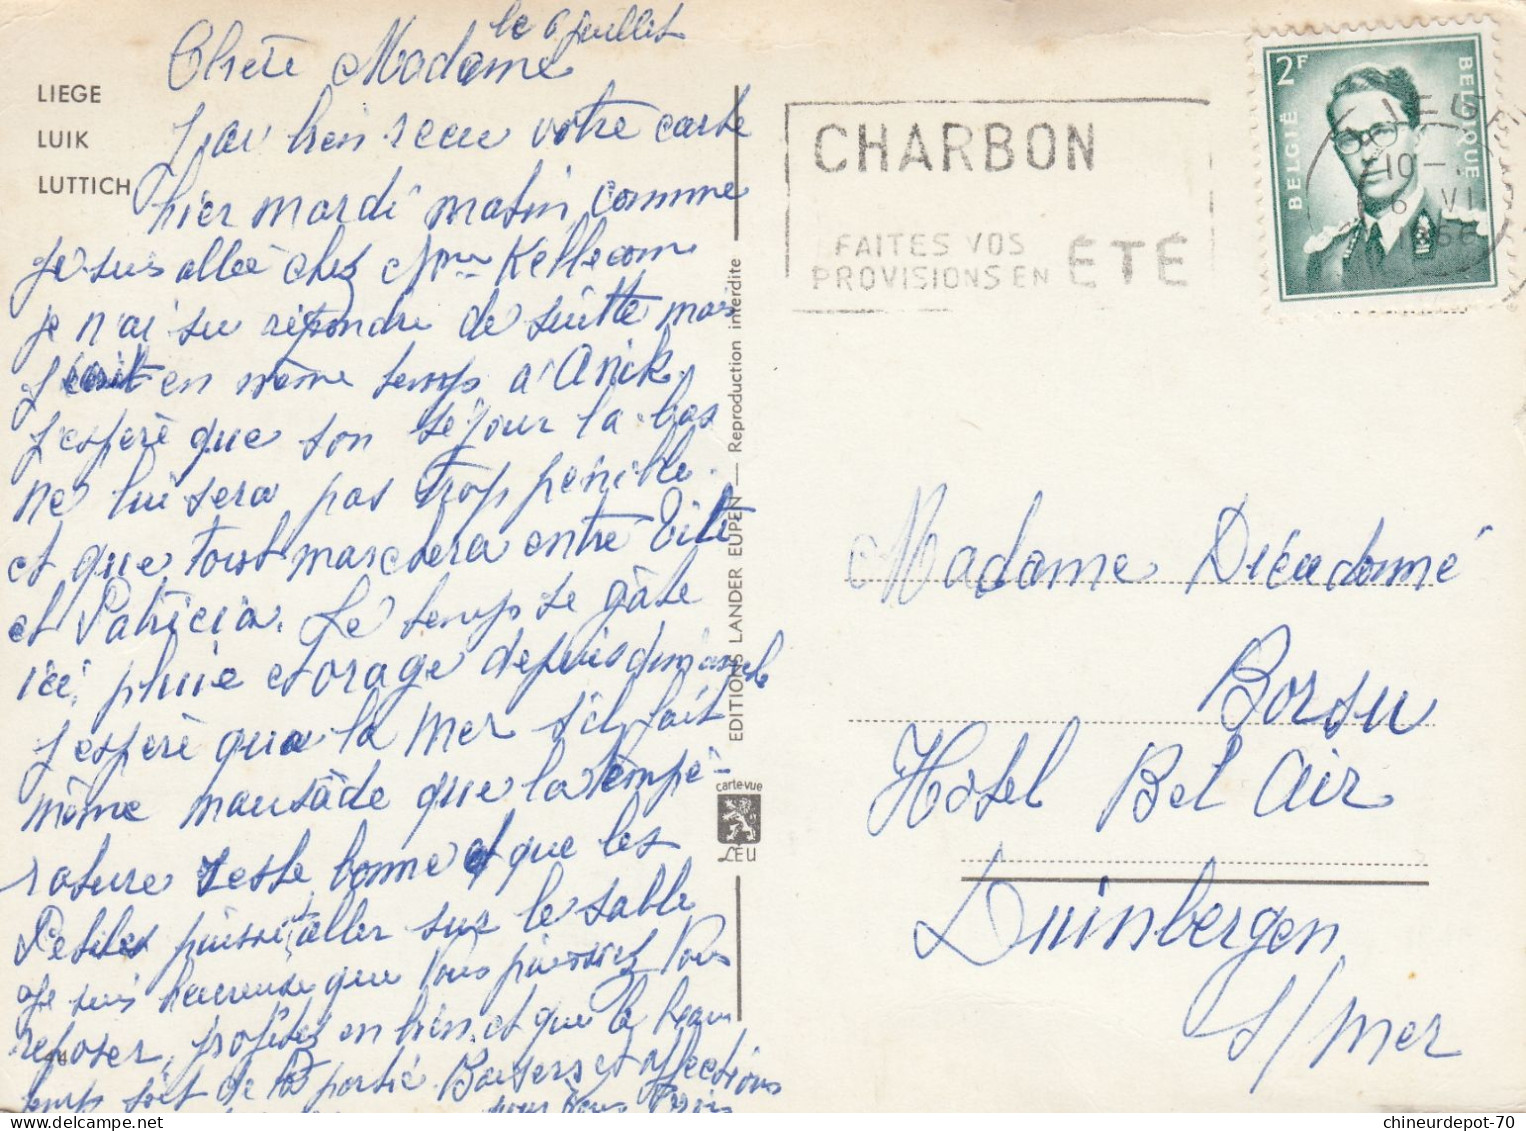 le 6 juillet
Chère Madame
LIEGE
LUIK
LUTTICH
J'ai bien reçu votre carte
hier mardi matin comme
je suis allée chez Mme Kellecom
je n'ai su répondre de suitte mais
j'écrit en même temps a Anik.
J'espère que son séjour la bas
ne lui sera pas trop penible.
et que tout marchera entre
et Patricia. Le temps se gâte
ici, pluie et orage depuis dimanche
J'espère qua la mer s'il fait
même mausade que la tempé-
rature reste bonne et que les
Petites puissent aller sur le sable
Je suis heureuse que Vous puissiez Vous
reposer, profitez en bien et que le beau
temps soit de la partie. Baisers et affections
pour Vous
44
EDITIONS LANDER EUPEN — Reproduction interdite
carte-vue
LEU
CHARBON
FAITES VOS
PROVISIONS EN ÉTÉ
2F
BELGIË
BELGIQUE
10-
6 VI
1966
Madame Dieudonné
Borsu
Hotel Bel Air
Duinbergen
s/mer
chineurdepot-70
delcampe.net